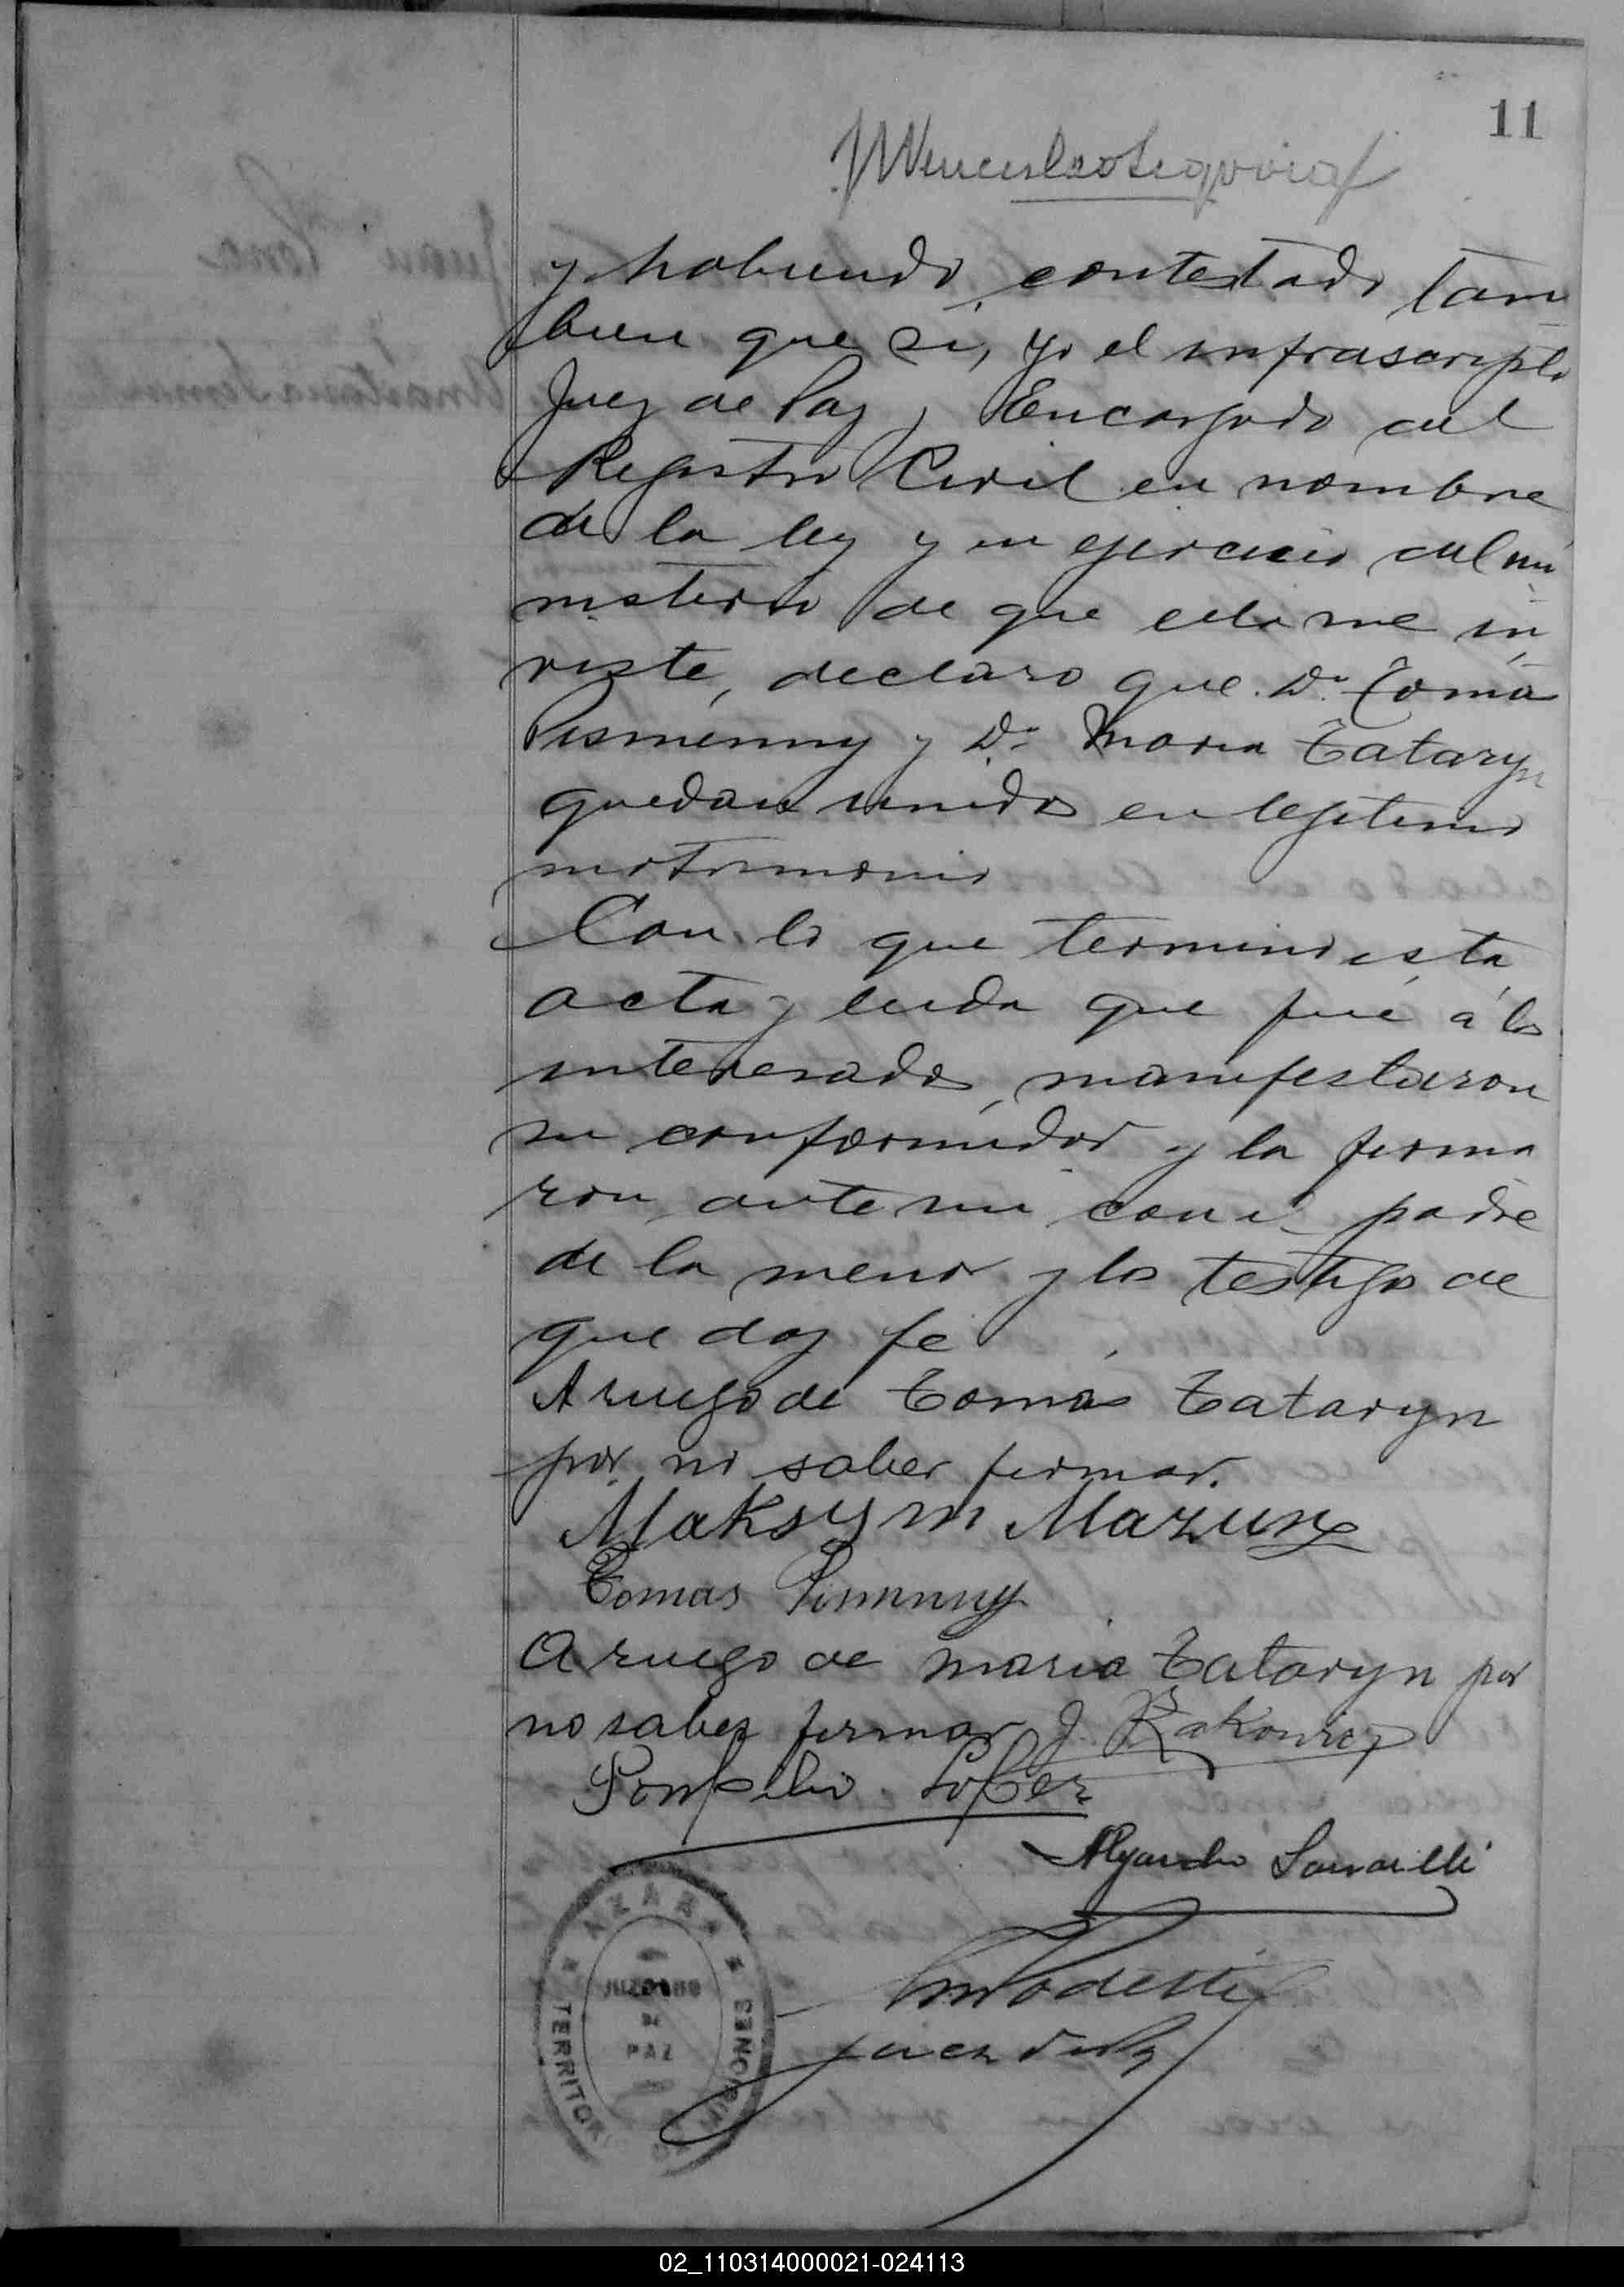 11
y habiendo contestado tam
bien que si, yo el infrascripto
Juez de Paz y Encargado del
Registro Civil en nombre
de la ley y en ejercicio del mi
nisterio de que ella me in
viste, declaro que Dn. Tomás
Pismenny y Da. Maria Tataryn
quedan unidos en legitimo
matrimonio
Con lo que terminó esta
acta y leida que fué á los
interesados, manifestaron
su conformidad y la firma
ron ante mi con el padre
de la menor y los testigos de
que doy fe
A ruego de Tomás Tataryn
por no saber firmar.
Maksym Mazur
Tomas Pismenny
A ruego de Maria Tataryn por
no saber firmar J.
Pompilio Lopez
Alejandro
Juez de Paz
AZARA
JUZGADO
DE
PAZ
TERRITORIO MISIONES
02_110314000021-024113